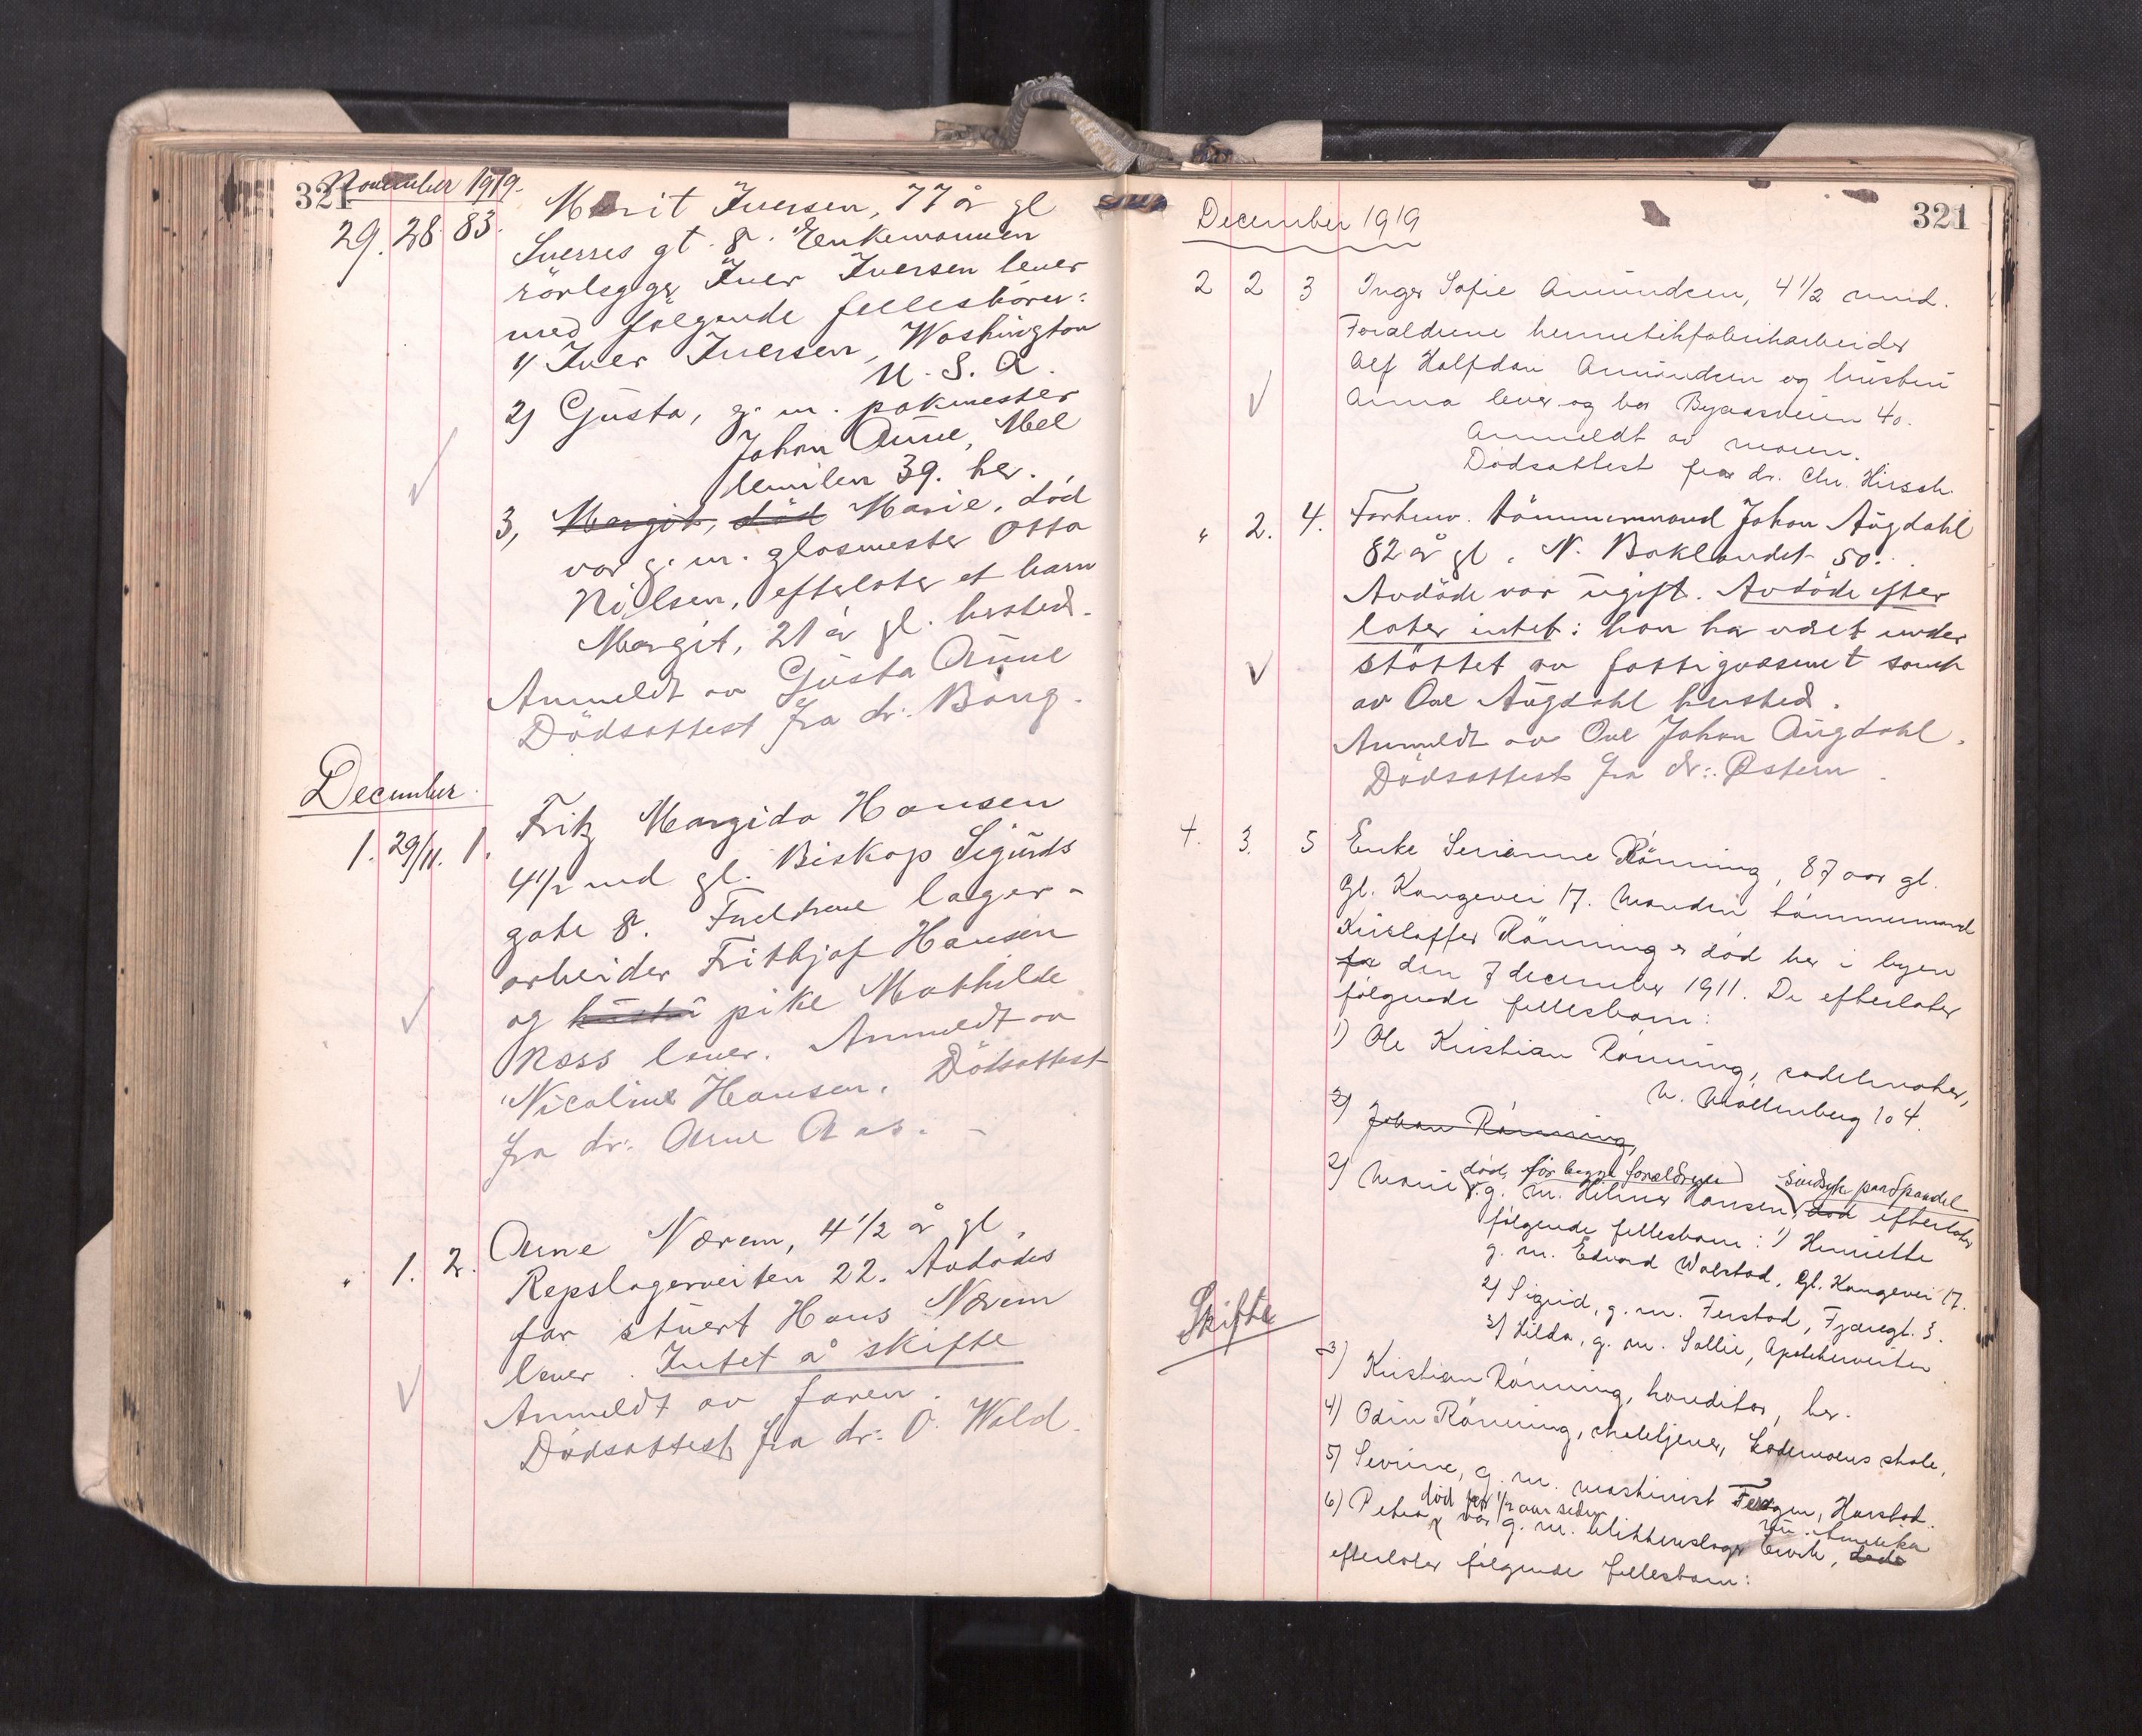 321
November 1919.
29. 28 83. Marit Iversen, 77 år gl
Sverres gt. 8. Enkemannen
rörlegger Iver Iversen lever
med følgende fellesbörn:
1) Iver Iversen, Washington
U. S. A.
2) Gusta, g. m. pakmester
Johan Aune, Mel
lemilen 39. her.
3, Margit, död Marie, död
var g. m. glasmester Otto
Nilsen, efterlater et barn
Margit, 21 år gl. hersted.
Anmeldt av Gusta Aune
Dödsattest fra dr: Bang.
December.
1. 29/11. 1. Fritz Margido Hansen
4 1/2 md gl. Biskop Sigurds
gate 8. Foreldrene lager-
arbeider Fritbjof Hansen
og hustru pike Mathilde
Ness lever. Anmeldt av
Nicoline Hansen. Dödsattest
fra dr: Arne Aas. -
" 1. 2. Arne Nærem, 4 1/2 år gl.
Repslagerveiten 22. Avdødes
far stuert Hans Nærem
lever. Intet å skifte
Anmeldt av faren.
Dödsattest fra dr: O. Wold.
321
December 1919
2 2 3 Inger Sofie Amundsen, 4 1/2 mnd.
Foraldrene hermetikfabrikarbeider
Alf Halfdan Amundsen og hustru
Anna lever og bor Byaasveien 40.
Anmeldt av moren.
Dödsattest fra dr. Chr. Hirsch.
" 2. 4. Forhenv. tömmermand Johan Augdahl
82 år gl. N. Baklandet 50.
Avdöde var ugift. Avdöde efter
later intet: han har været under
stöttet av fattigvæsenet samt
av Ove Augdahl hersted.
Anmeldt av Ove Johan Augdahl.
Dödsattest fra dr: Østern.
4. 3. 5 Enke Serianne Rönning, 87 aar gl.
Gl. Kongevei 17. Manden tömmermand
Kristoffer Rönning er död her i byen
fra den 7 december 1911. De efterlater
følgende fellesbarn:
1) Ole Kristian Rönning, sadelmaker,
N. Möllenberg 104.
2) Johan Rönning,
död, för begge forældrene) Sindsyk paa Spandel
2) Marie g. m. Hilmar Hansen, död efterlater
følgende fellesbarn: 1) Henriette
g. m. Edvard Walstad, Gl. Kongevei 17.
2) Sigrid, g. m. Ferstad, Fjæregt. 3.
3) Hilda, g. m. Sollie, Apothekerveiten
Skifte
3) Kristian Rönning, konditor, her.
4) Odin Rönning, skoletjener, Lademoens skole,
5) Sevrine, g. m. maskinist, Harstad.
död for 1/2 aar siden Amerika
6) Petra var g. m. blikkenslager, död
efterlater følgende fellesbarn: